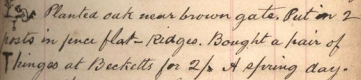 Planted oak near brown gate. Put in 2
posts in fence flat - Ridges. Bought a pair of
T hinges at Becketts for 2/s A spring day.